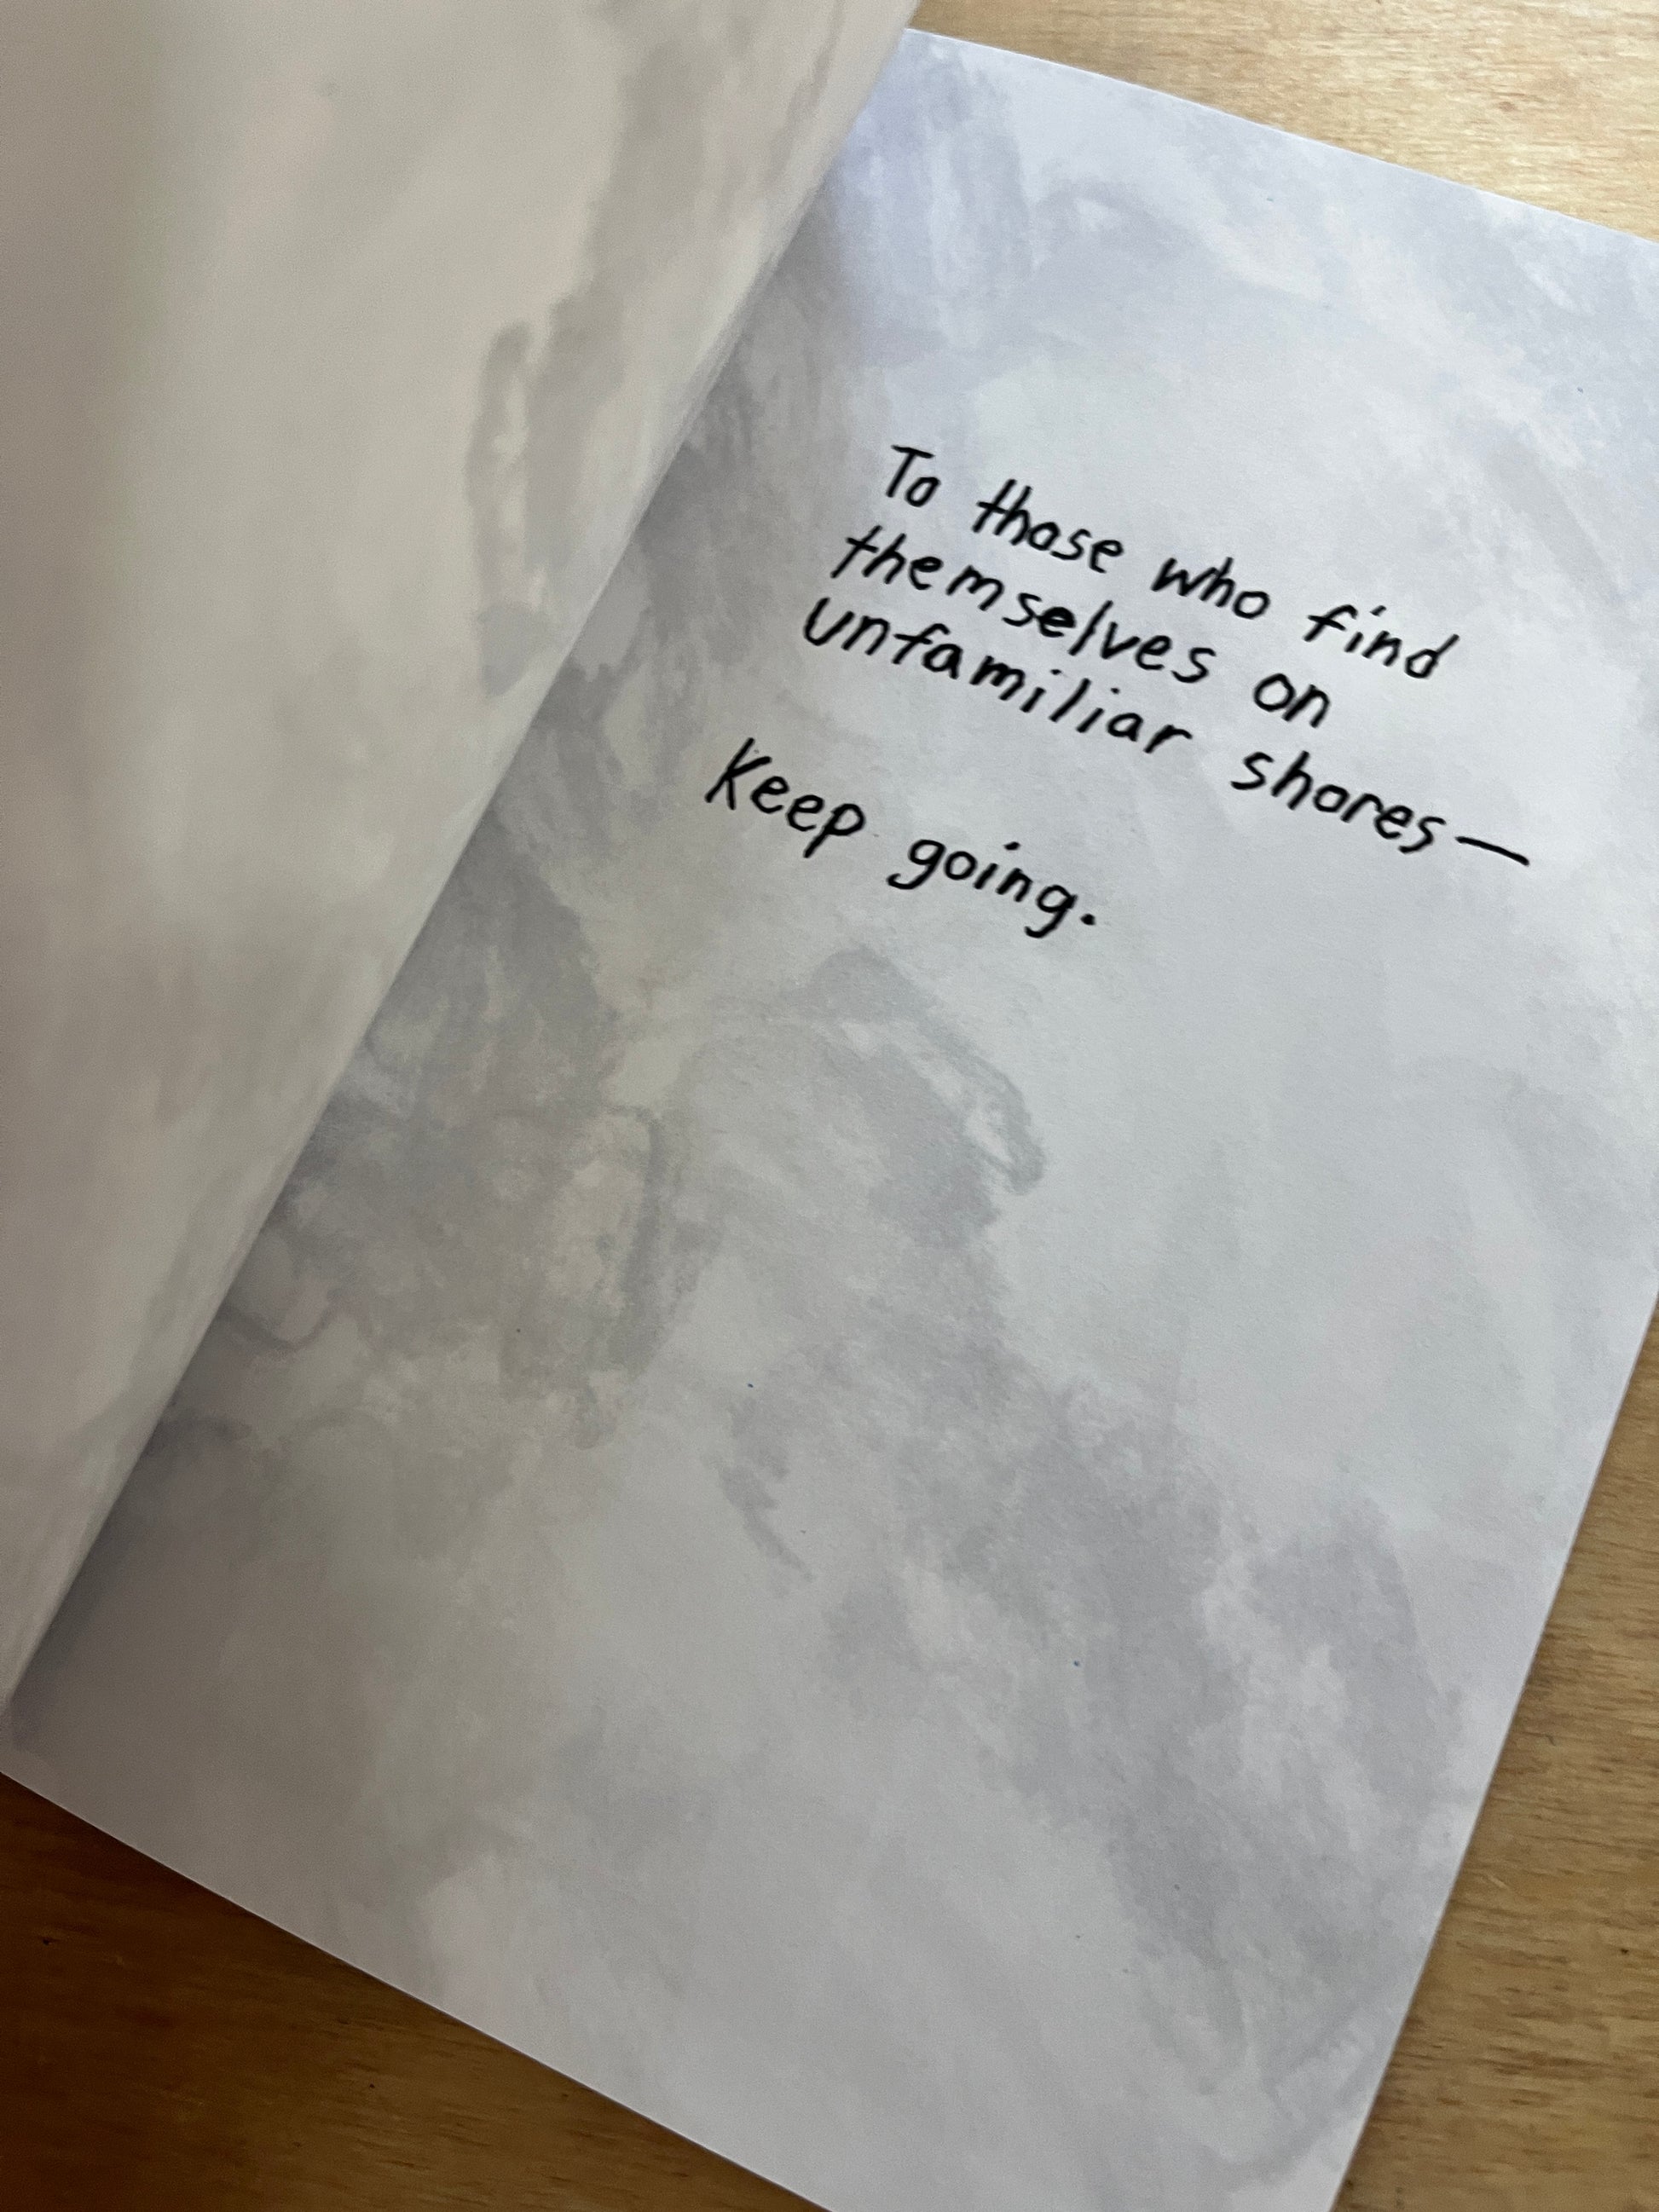 To those who find
themselves on
unfamiliar shores—
Keep going.